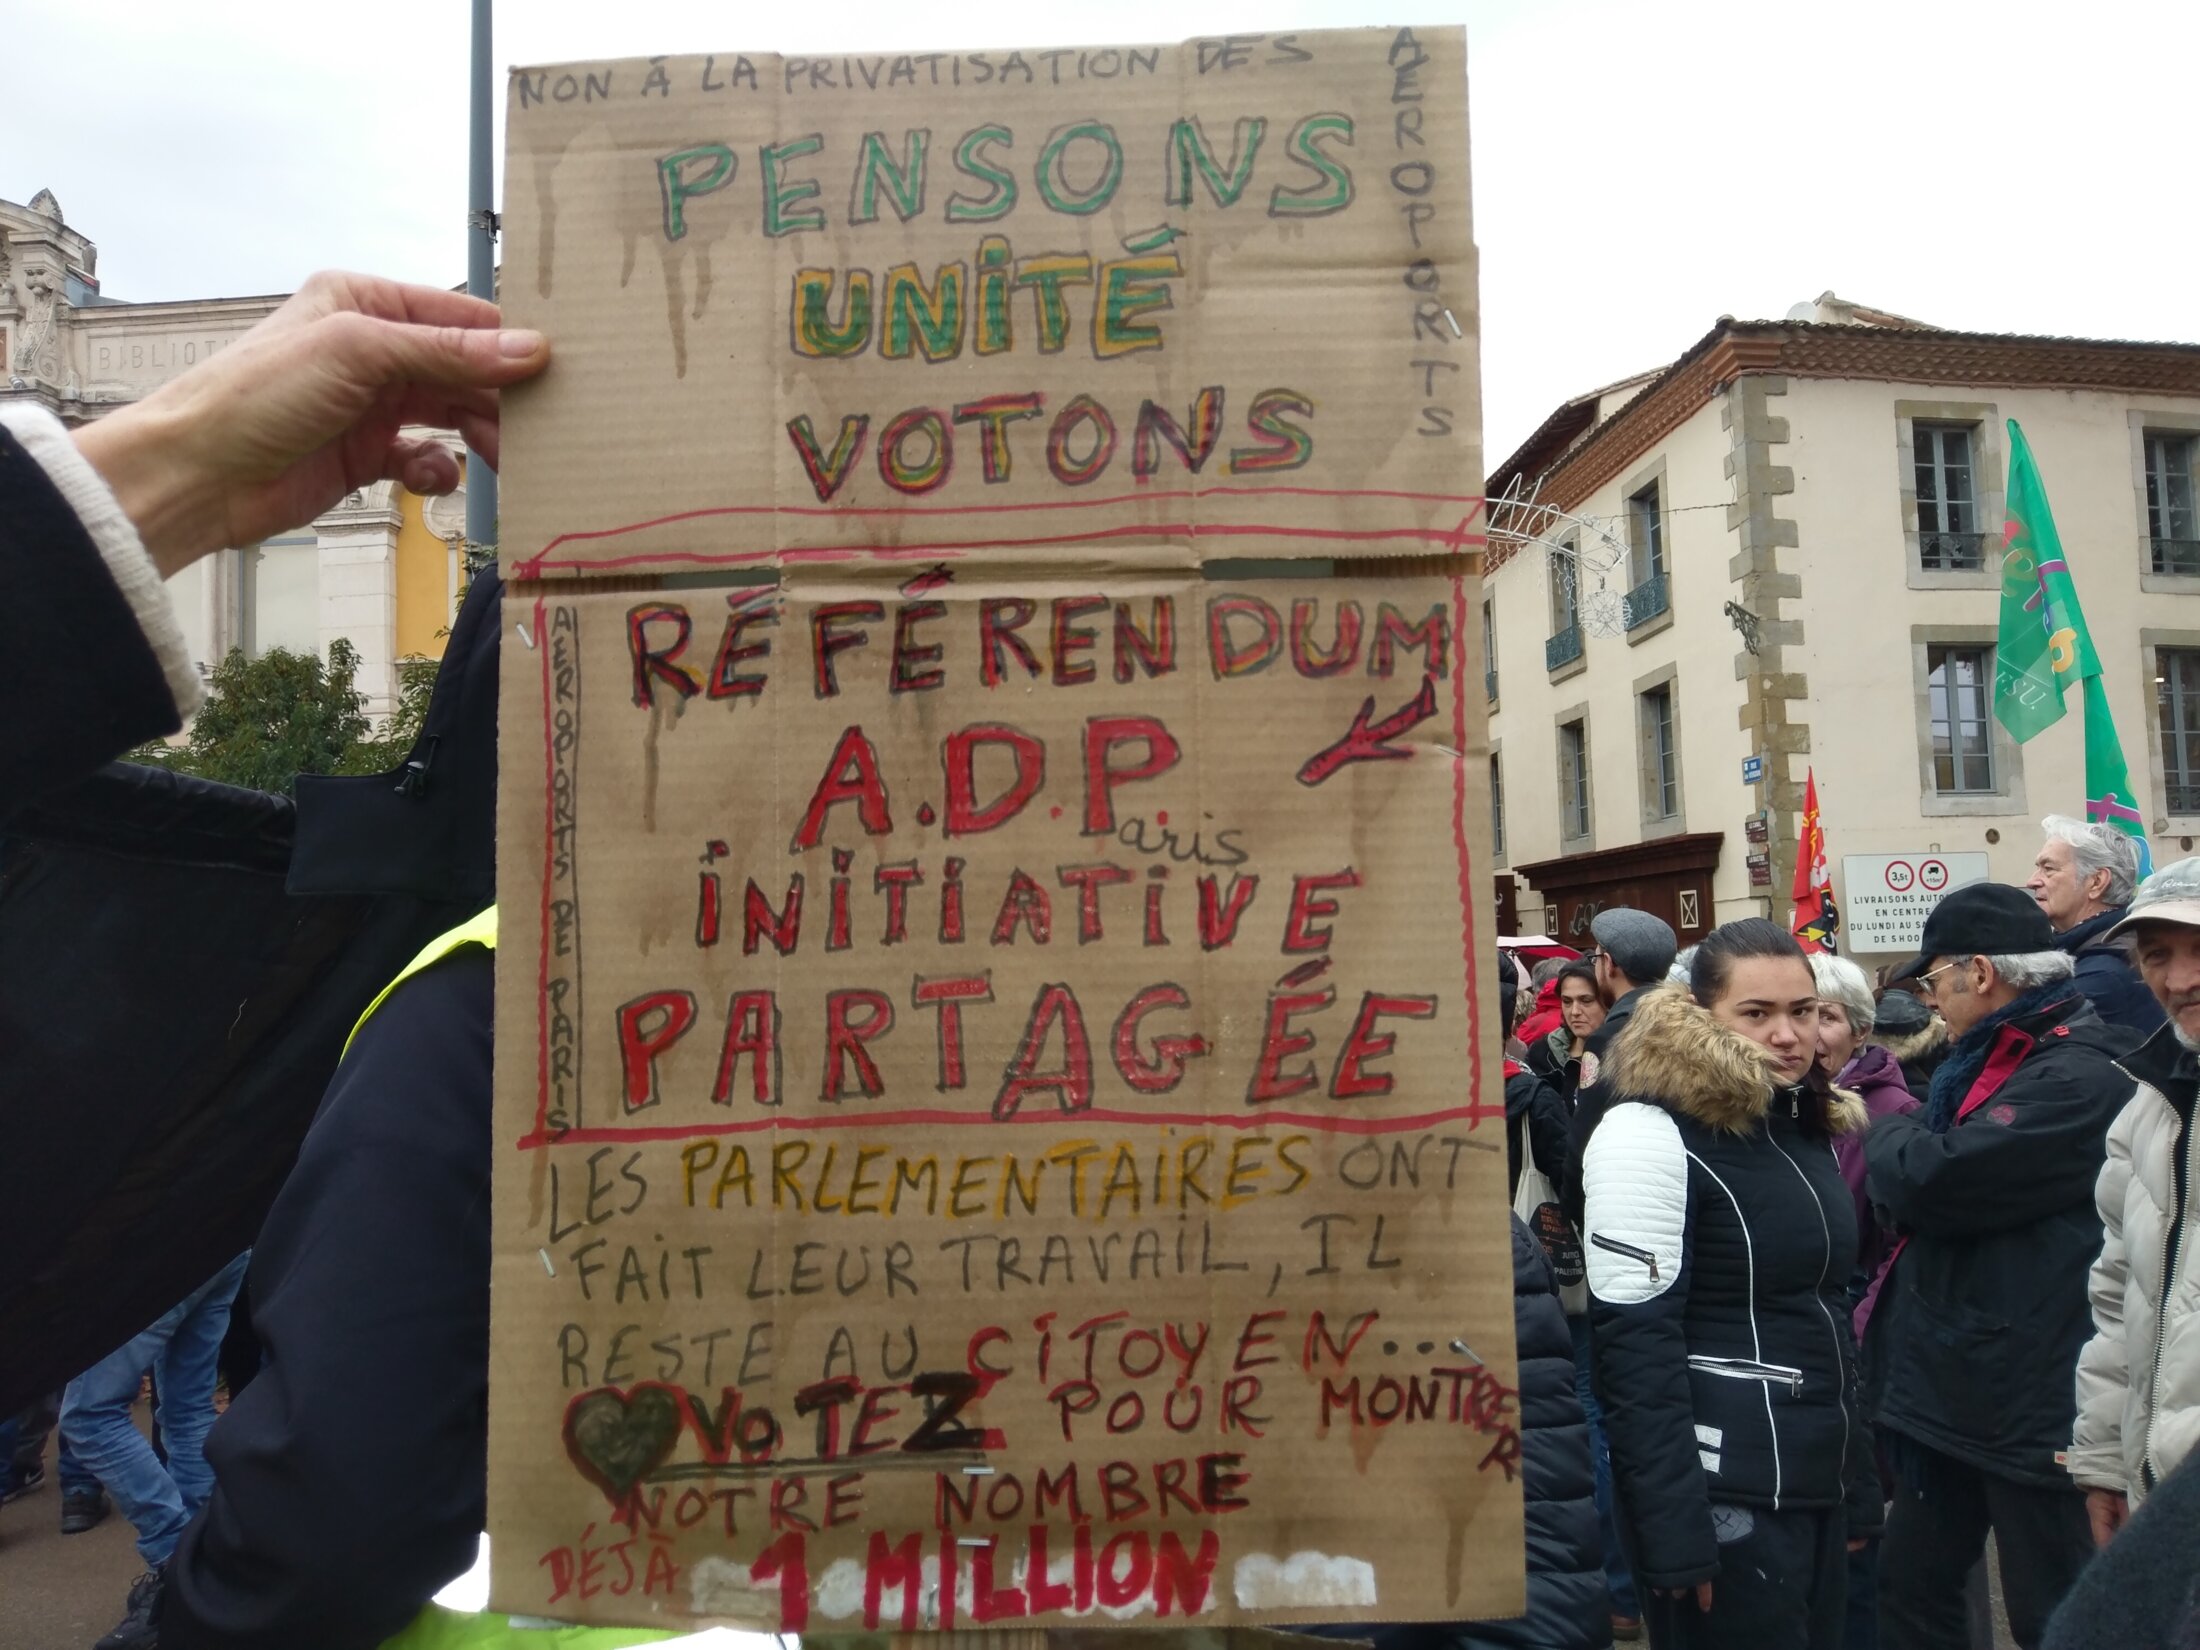 NON À LA PRIVATISATION DES
AEROPORTS
PENSONS
UNiTÉ
VOTONS
AEROPORTS DE PARIS
RÉFÉRENDUM
A.D.P.aris
iNiTiATiVE
PARTAGÉE
LES PARLEMENTAiRES ONT
FAiT LEUR TRAVAiL, IL
RESTE AU CiTOYEN...
VOTEZ POUR MONTRER
NOTRE NOMBRE
DÉJÀ 1 MiLLiON
BIBLIOTH
F.S.U.
3,5t
LIVRAISONS AUTO
EN CENTRE
DU LUNDI AU SA
DE 5H00